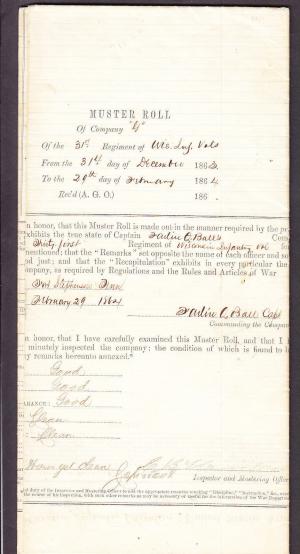 MUSTER ROLL
Of Company "G"
Of the 31st Regiment of Wis. Inf. Vols
From the 31st day of December 1863.
To the 29th day of February 1864
Rec'd (A. G. O.) 186 .
n honor, that this Muster Roll is made out in the manner required by the pr
xhibits the true state of Captain Farlin Q. Ball's Com
Thirty first Regiment of Wisconsin Infantry Vol for
mentioned; that the "Remarks" set opposite the name of each officer and so
d just; and that the "Recapitulation" exhibits in every particular the
mpany, as required by Regulations and the Rules and Articles of War
Fort Tenn
February 29 1864
Farlin Q. Ball Capt
Commanding the Company
n honor, that I have carefully examined this Muster Roll, and that I h
minutely inspected the company; the condition of which is found to b
y remarks hereunto annexed."
Good
Good
ARANCE: Good
Clean
Clean
Clean
Inspector and Mustering Office